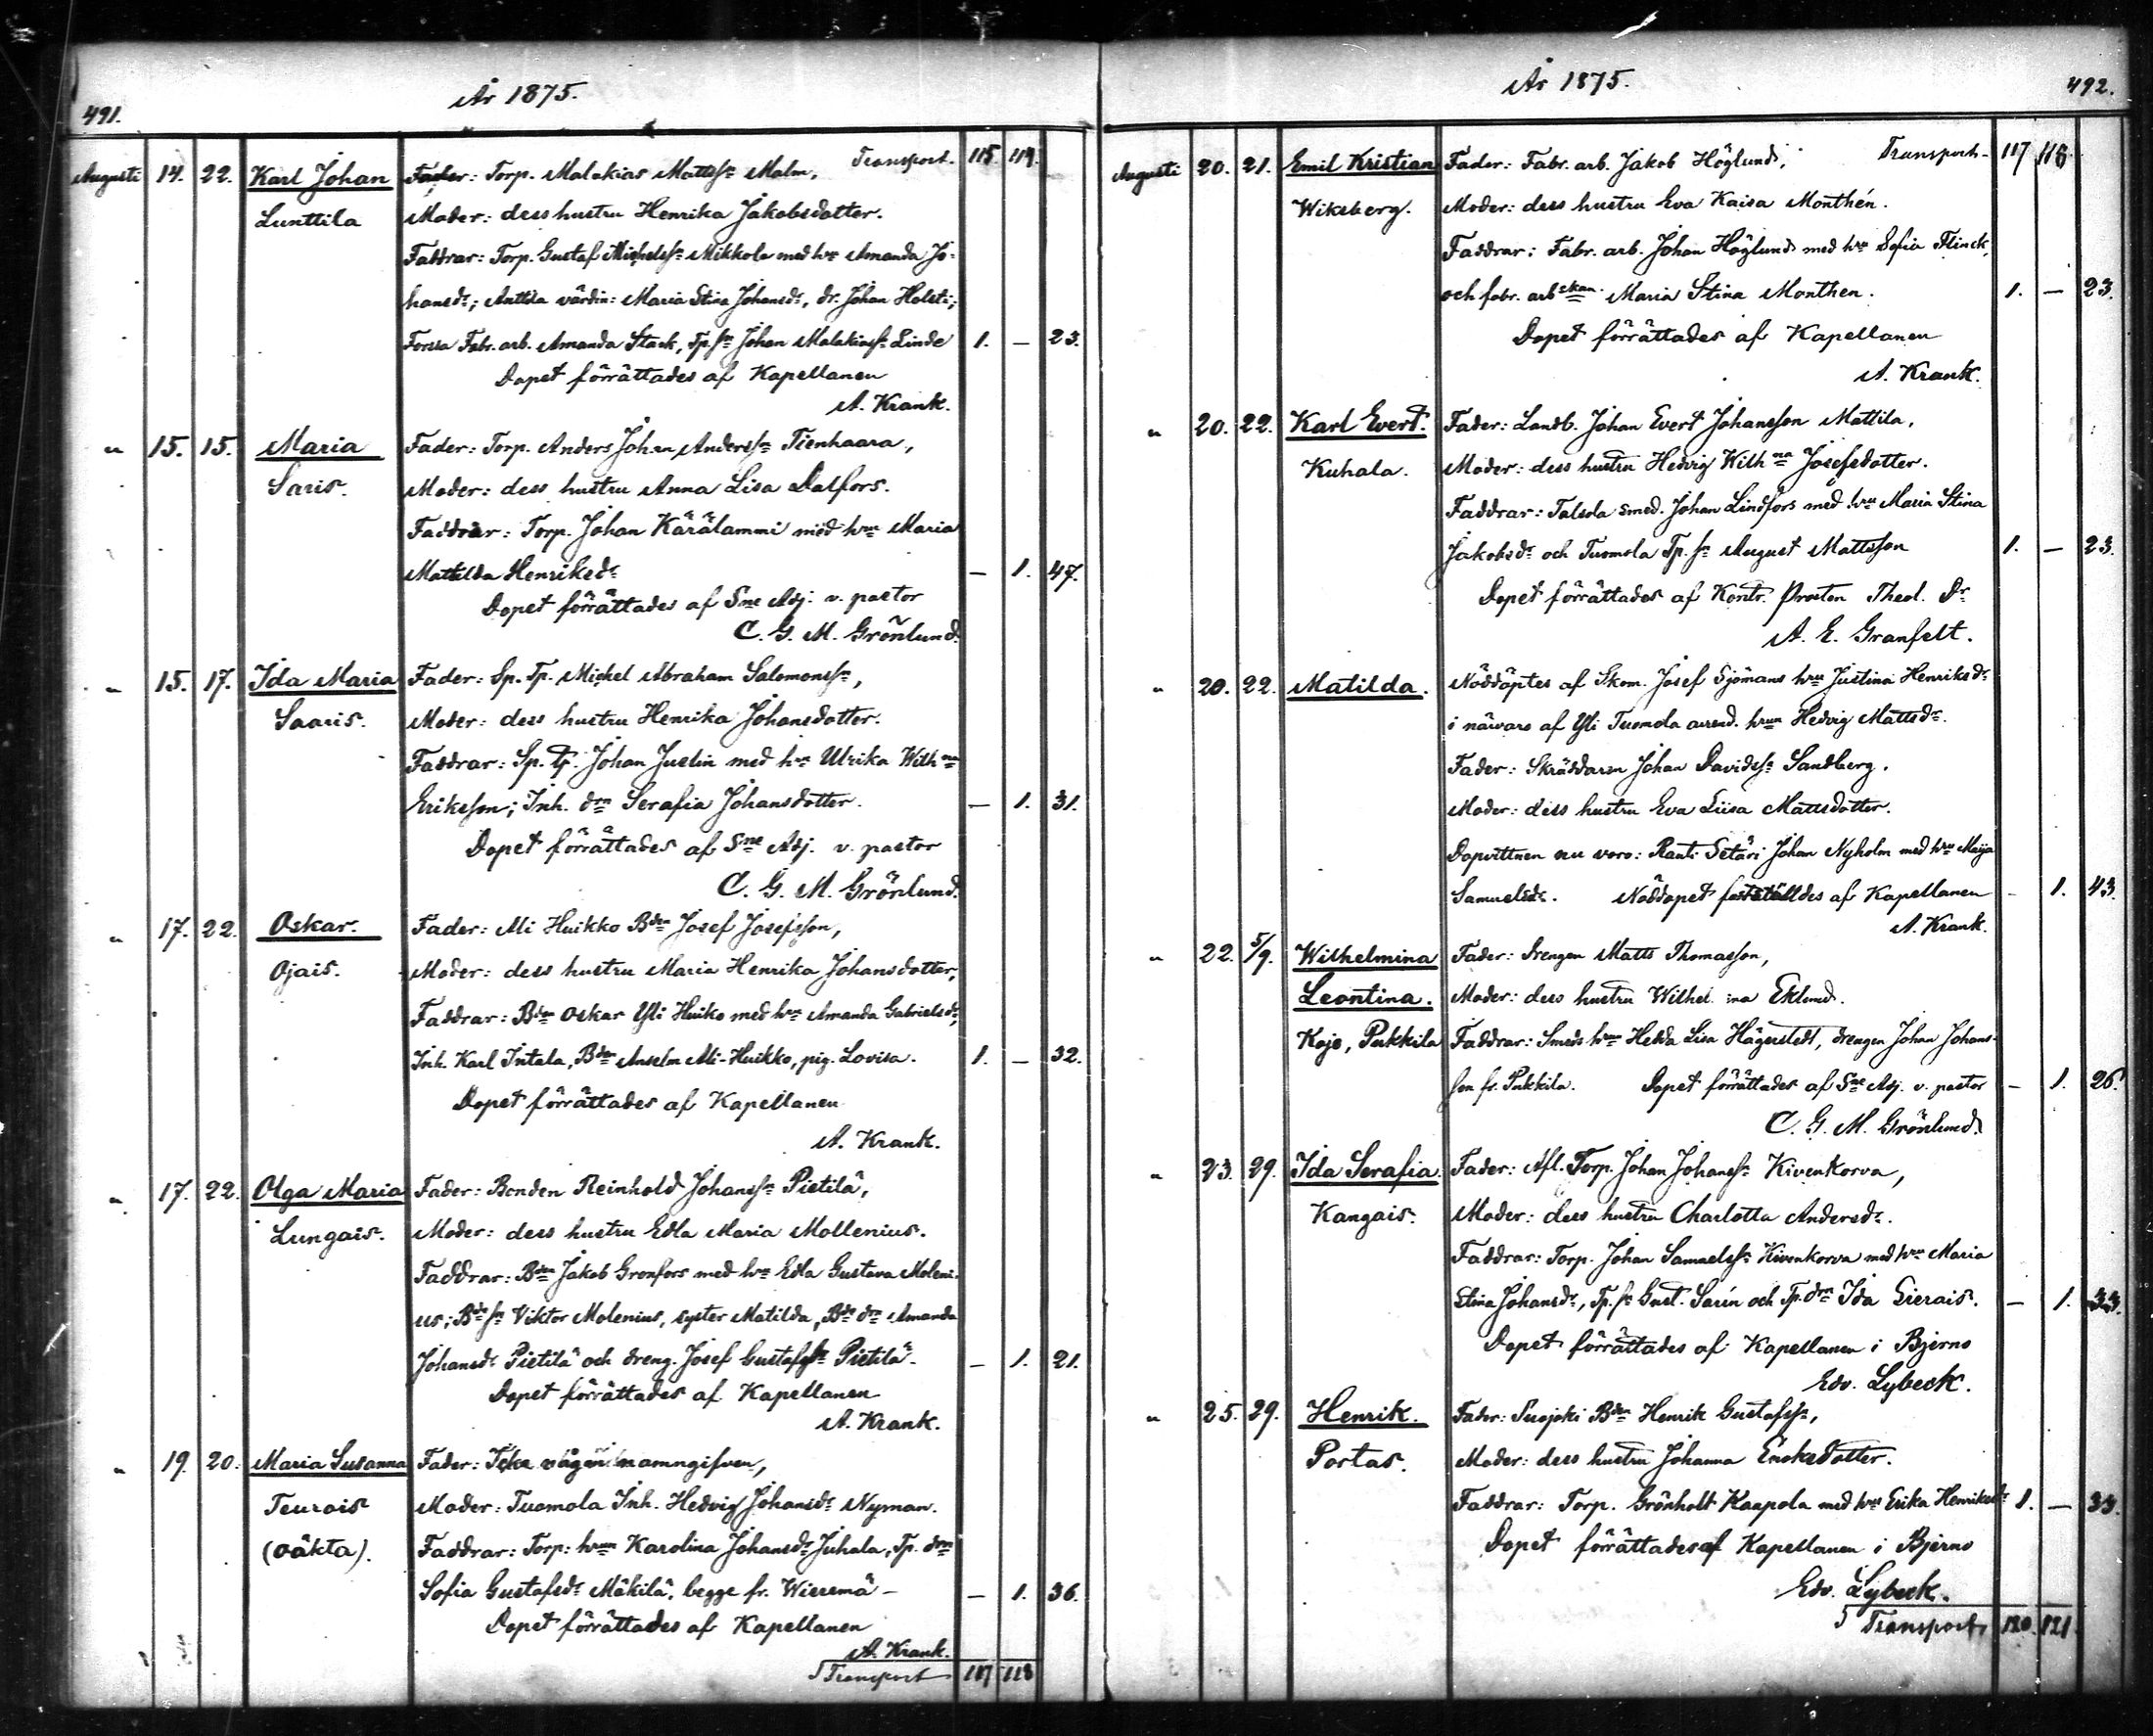 491.
År 1875.
Augusti 14. 22. Karl Johan Fader: Torp. Malakias Mattss:n Malm, Transport. 115. 114.
Lunttila Moder: dess hustru Henrika Jakobsdotter.
Faddrar: Torp. Gustaf Michelss:n Mikkola med h:u Amanda Jo-
hansd:r; Anttila värdin: Maria Stina Johansd:r, dr. Johan Holsti;
Forssa Fabr. arb. Amanda Stack, Tp. s:n Johan Malakiass:n Linde 1. — 23.
Dopet förrättades af Kapellanen
A. Krank.
" 15. 15. Maria Fader: Torp. Anders Johan Anderss:n Tienhaara,
Saris. Moder: dess hustru Anna Lisa Dalfors.
Faddrar: Torp. Johan Kärälammi med h:un Maria
Mattilda Henriksd:r — 1. 47.
Dopet förrättades af S:ne Adj. v. pastor
C. G. M. Grönlund.
" 15. 17. Ida Maria Fader: Sp. Tp. Michel Abraham Salomonss:n,
Saaris. Moder: dess hustru Henrika Johansdotter.
Faddrar: Sp. Tp. Johan Justin med h:u Ulrika Wilh:na
Eriksson; Inh. d:rn Serafia Johansdotter. — 1. 31.
Dopet förrättades af S:ne Adj. v. pastor
C. G. M. Grönlund.
" 17. 22. Oskar. Fader: Ali Huikko B:den Josef Josefsson,
Ojais. Moder: dess hustru Maria Henrika Johansdotter,
Faddrar: B:den Oskar Yli Huiko med h:u Amanda Gabrielsd:r,
Inh. Karl Intala, B:den Anselm Ali-Huikko, pig. Lovisa. 1. — 32.
Dopet förrättades af Kapellanen
A. Krank.
" 17. 22. Olga Maria Fader: Bonden Reinhold Johanss:n Pietilä,
Lungais. Moder: dess hustru Edla Maria Mollenius.
Faddrar: B:den Jakob Gronfors med h:u Edla Gustava Moleni-
us; B:de s:n Viktor Molenius, syster Matilda, B:de d:rn Amanda
Johansd:r Pietilä och dreng. Josef Gustafss:n Pietilä. — 1. 21.
Dopet förrättades af Kapellanen
A. Krank.
" 19. 20. Maria Susanna Fader: Icke någon namngifven,
Teurois Moder: Tuomola Inh. Hedvig Johansd:r Nyman.
(oäkta). Faddrar: Torp: h:run Karolina Johansd:r Juhala, Tp. d:rn
Sofia Gustafsd:r Mäkilä, begge fr. Wieremä — — 1. 36.
Dopet förrättades af Kapellanen
A. Krank.
Transport 117 118
År 1875. 492.
Augusti 20. 21. Emil Kristian Fader: Fabr. arb. Jakob Höglund, Transport. 117 118.
Wiksberg. Moder: dess hustru Eva Kaisa Monthén.
Faddrar: Fabr. arb. Johan Höglund med h:u Sofia Flinck,
och fabr. arb:skan Maria Stina Monthen. 1. — 23.
Dopet förrättades af Kapellanen
A. Krank.
" 20. 22. Karl Evert. Fader: Landb. Johan Evert Johansson Mattila,
Kuhala. Moder: dess hustru Hedvig Wilh:na Josefsdotter.
Faddrar: Talsola smed. Johan Lindfors med h:ru Maria Stina
Jakobsd:r och Tuomola Tp. s:n August Mattsson 1. — 23.
Dopet förrättades af Kontr. Prosten Theol. Dr
A. E. Granfelt.
" 20. 22. Matilda. Nöddöptes af Skom. Josef Sjömans h:ru Justina Henriksd:r
i närvaro af Yli Tuomola arrend. h:run Hedvig Mattsd:r.
Fader: Skräddaren Johan Davidss:n Sandberg.
Moder: dess hustru Eva Liisa Mattsdotter.
Dopvittnen nu voro: Ranti Setäri Johan Nyholm med h:ru Maija
Samuelsd:r. Nöddopet fastställdes af Kapellanen — 1. 43.
A. Krank.
" 22. 5/9. Wilhelmina Fader: Drengen Matts Thomasson,
Leontina. Moder: dess hustru Wilhelmina Eklund.
Kojo, Pukkila Faddrar: Smeds h:run Hedda Lisa Hägerstedt, drengen Johan Johans-
son fr. Pukkila. Dopet förrättades af S:ne Adj. v. pastor — 1. 26.
C. G. M. Grönlund.
" 23. 29. Ida Serafia. Fader: Afl. Torp. Johan Johanss:n Kivenkorva,
Kangais. Moder: dess hustru Charlotta Andersd:r.
Faddrar: Torp. Johan Samuelss:n Kivenkorva med h:ru Maria
Stina Johansd:r, Tp. s:n Gust. Sarin och Tp. d:rn Ida Eierais. — 1. 33.
Dopet förrättades af Kapellanen i Bjerno
Edv. Lybeck.
" 25. 29. Henrik. Fader: Suojoki B:den Henrik Gustafss:n,
Portas. Moder: dess hustru Johanna Eriksdotter.
Faddrar: Torp. Grönholt Kaapola med h:ru Erika Henriksd:r 1. — 33.
Dopet förrättades af Kapellanen i Bjerno
Edv. Lybeck.
Transport 120. 121.